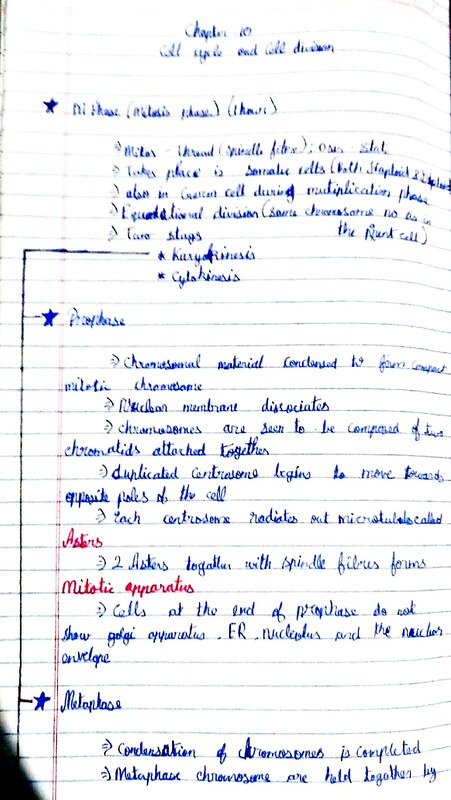 Chapter 10
Cell cycle and Cell division
★ M Phase (Mitosis phase) (1hour)
⇒ Mitos - thread (spindle fibre); Osis - stat
⇒ Takes place is somatic cells (both Haploid &
⇒ also in Germ cell during multiplication phase
⇒ Equational division (same chromosome no as in
⇒ Two stags the Parent cell)
★ Karyokinesis
★ Cytokinesis
★ Prophase
⇒ Chromosomal material condensed to form compact
mitotic chromosome
⇒ Nuclear membrane dissociates
⇒ Chromosomes are seen to be composed of two
chromatids attached together
⇒ Duplicated Centrosome begins to move towards
opposite poles of the cell
⇒ Each centrosome radiates out microtubules called
Asters
⇒ 2 Asters together with spindle fibres forms
Mitotic apparatus
⇒ Cells at the end of prophase do not
show golgi apparatus, ER, nucleolus and the nuclear
envelope
★ Metaphase
⇒ Condensation of chromosomes is completed
⇒ Metaphase chromosome are held together by